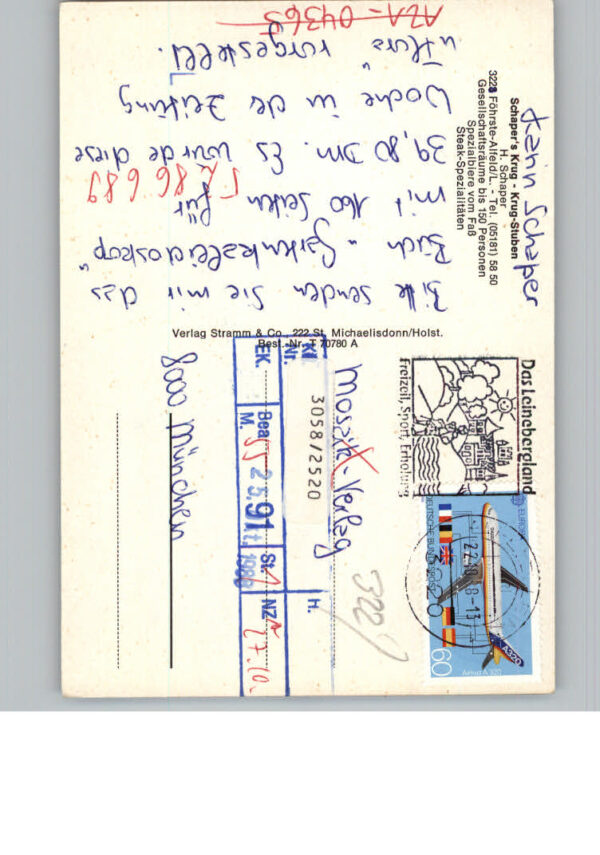 Karin Schaper
Schaper's Krug - Krug-Stuben
H. Schaper
3221 Föhrste-Alfeld/L. - Tel. (05181) 58 50
Gesellschaftsräume bis 150 Personen
Spezialbiere vom Faß
Steak-Spezialitäten
Bitte senden Sie mir das
Buch "Gartenkaleidoskop"
mit 160 Seiten für
39,80 DM. Es wurde diese
Woche in der Zeitung
"Harz" vorgestellt.
5286689
AZA-04365
Verlag Stramm & Co., 222 St. Michaelisdonn/Holst.
Best.-Nr. T 70780 A
Das Leinebergland
Freizeit, Sport, Erholung
EUROPA
DEUTSCHE BUNDESPOST
60
Airbus A 320
A320
22.10.88-13
3220
Mosaik-Verlag
8000 München
Kl. H.
Nr.
3058/2520
EK. Bear. St. NZ
M. 25. Okt. 1988
91
27.10.
322